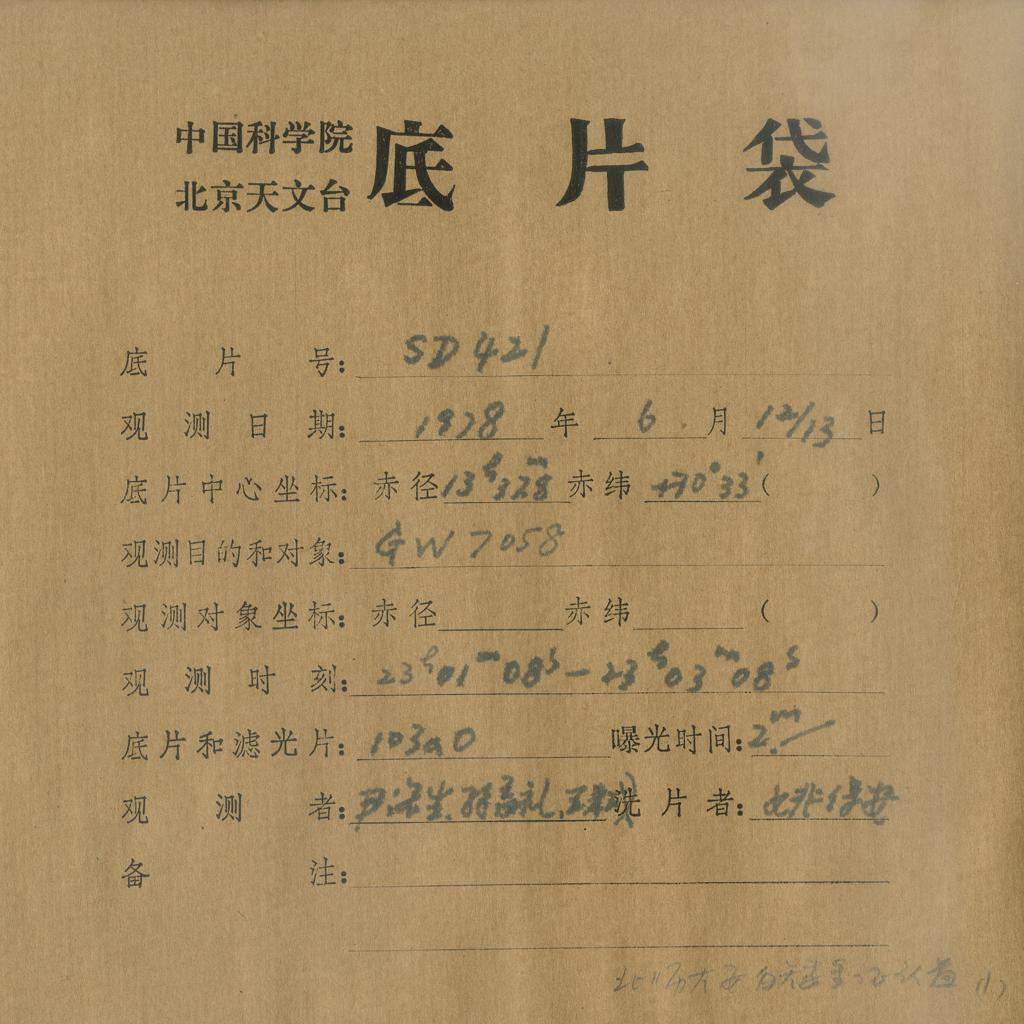 中国科学院
北京天文台
底片袋
底片号: SD 421
观测日期: 1978 年 6 月 12/13 日
底片中心坐标: 赤径 13ʰ32ᵐ8 赤纬 +70°33′ ( )
观测目的和对象: GW 7058
观测对象坐标: 赤径 赤纬 ( )
观测时刻: 23ʰ01ᵐ08ˢ—23ʰ03ᵐ08ˢ
底片和滤光片: 103aO 曝光时间: 2ᵐ
观测者: 洗片者:
备注:
北师大 (1)